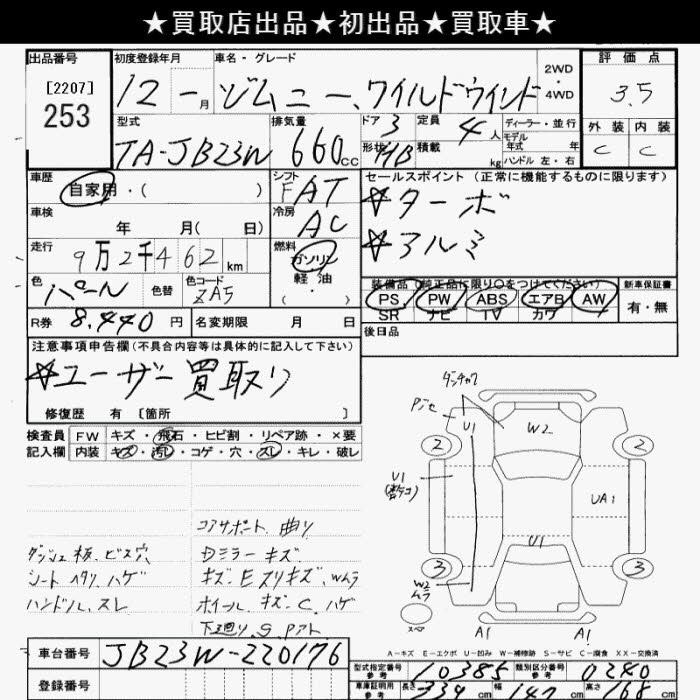 ★買取店出品★初出品★買取車★
出品番号
[2207]
253
初度登録年月
12 - 月
車名・グレード
ジムニー、ワイルドウインド
2WD
・
4WD
評価点
3.5
外装 内装
C C
型式
TA-JB23W
排気量
660 CC
ドア 3
形状 HB
定員 4 人
積載 kg
ディーラー・並行
モデル
年式 年
ハンドル 左・右
車歴
自家用・( )
車検
年 月( 日)
走行
9万2千462 km
色
パール
色替
色コード
ZA5
R券 8.440 円
名変期限 月 日
シフト
FAT
冷房
AC
燃料
ガソリン
軽油
( ・ )
セールスポイント (正常に機能するものに限ります)
☆ターボ
☆アルミ
装備品(純正品に限り○をつけてください)
PS PW ABS エアB AW
SR ナビ TV カワ
新車保証書
有・無
後日品
注意事項申告欄(不具合内容等は具体的に記入して下さい)
☆ユーザー買取り
修復歴 有 [箇所 ]
検査員
記入欄
FW キズ・飛石・ヒビ割・リペア跡・×要
内装 キズ・汚レ・コゲ・穴・スレ・キレ・破レ
コアサポート 曲り
ダッシュ板、ビス穴
Dミラー キズ
シート ヘタリ、ハゲ
キズ・Eスリキズ、Wムラ
ハンドル、スレ
ホイール、キズ・C、ハゲ
下廻り、S
U1
W2
2
2
U1
UA1
U1
3
3
W2
ムラ
A1
A1
A-キズ E-エクボ U-凹み W-補修跡 S-サビ C-腐食 XX-交換済
車台番号 JB23W-220176
登録番号
型式指定番号
参考
10385
類別区分番号
参考
0240
車庫証明用
参考
長さ 339 cm
幅 147 cm
高さ 168 cm